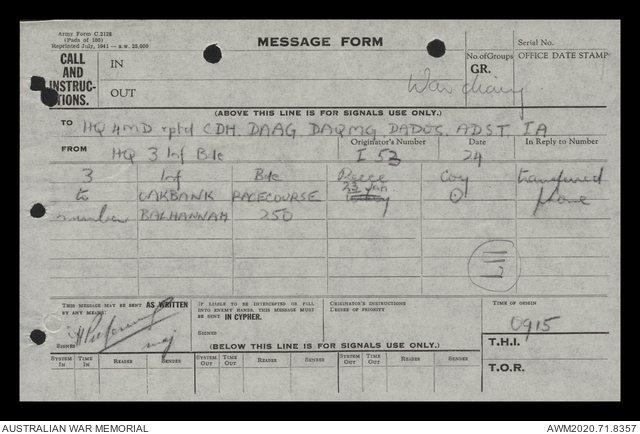 Army Form C.2128
(Pads of 100)
Reprinted July, 1941—a.w. 25,669
MESSAGE FORM
Serial No.
CALL AND INSTRUC-TIONS.
IN
OUT
No. of Groups
GR.
OFFICE DATE STAMP
War diary
(ABOVE THIS LINE IS FOR SIGNALS USE ONLY.)
TO HQ 4MD rptd CDH. DAAG DAQMG DADOS. ADST IA
FROM HQ 3 Inf Bde
Originator's Number I 53
Date 24
In Reply to Number
3 Inf Bde Recce Coy transferred
to OAKBANK RACECOURSE 23 Jan phone
number BALHANNAH 250
THIS MESSAGE MAY BE SENT AS WRITTEN BY ANY MEANS.
SIGNED maj
IF LIABLE TO BE INTERCEPTED OR FALL INTO ENEMY HANDS, THIS MESSAGE MUST BE SENT IN CYPHER.
SIGNED
ORIGINATOR'S INSTRUCTIONS
DEGREE OF PRIORITY
TIME OF ORIGIN
0915
T.H.I.
T.O.R.
(BELOW THIS LINE IS FOR SIGNALS USE ONLY.)
SYSTEM IN TIME IN READER SENDER SYSTEM OUT TIME OUT READER SENDER SYSTEM OUT TIME OUT READER SENDER
AUSTRALIAN WAR MEMORIAL
AWM2020.71.8357